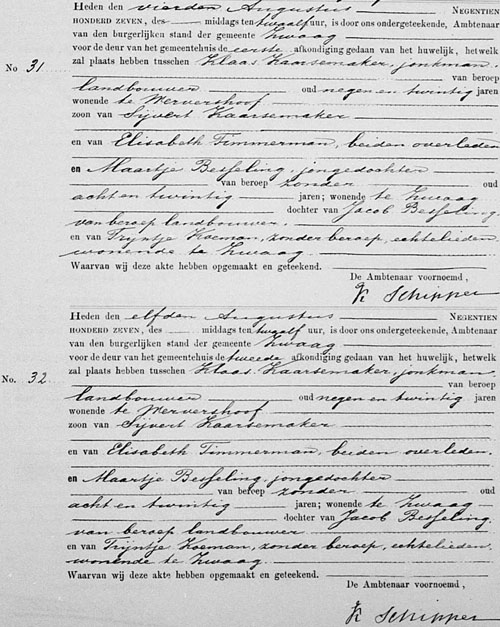 Heden den vierden Augustus NEGENTIEN
HONDERD ZEVEN, des middags ten twaalf uur, is door ons ondergeteekende, Ambtenaar
van den burgerlijken stand der gemeente Zwaag
voor de deur van het gemeentehuis de eerste afkondiging gedaan van het huwelijk, hetwelk
No 31. zal plaats hebben tusschen Klaas Kaarsemaker, jonkman.
van beroep
landbouwer oud negen en twintig jaren
wonende te Wervershoof
zoon van Sijvert Kaarsemaker
en van Elisabeth Timmerman, beiden overleden
en Maartje Besseling, jongedochter
van beroep zonder oud
acht en twintig jaren; wonende te Zwaag
dochter van Jacob Besseling
van beroep landbouwer.
en van Trijntje Koeman, zonder beroep, echtelieden
wonende te Zwaag.
Waarvan wij deze akte hebben opgemaakt en geteekend.
De Ambtenaar voornoemd,
K Schipper
Heden den elfden Augustus NEGENTIEN
HONDERD ZEVEN, des middags ten twaalf uur, is door ons ondergeteekende, Ambtenaar
van den burgerlijken stand der gemeente Zwaag
voor de deur van het gemeentehuis de tweede afkondiging gedaan van het huwelijk, hetwelk
No. 32 zal plaats hebben tusschen Klaas Kaarsemaker, jonkman.
van beroep
landbouwer oud negen en twintig jaren
wonende te Wervershoof
zoon van Sijvert Kaarsemaker
en van Elisabeth Timmerman, beiden overleden.
en Maartje Besseling, jongedochter
van beroep zonder oud
acht en twintig jaren; wonende te Zwaag
dochter van Jacob Besseling
van beroep landbouwer
en van Trijntje Koeman, zonder beroep, echtelieden,
wonende te Zwaag.
Waarvan wij deze akte hebben opgemaakt en geteekend.
De Ambtenaar voornoemd,
K Schipper